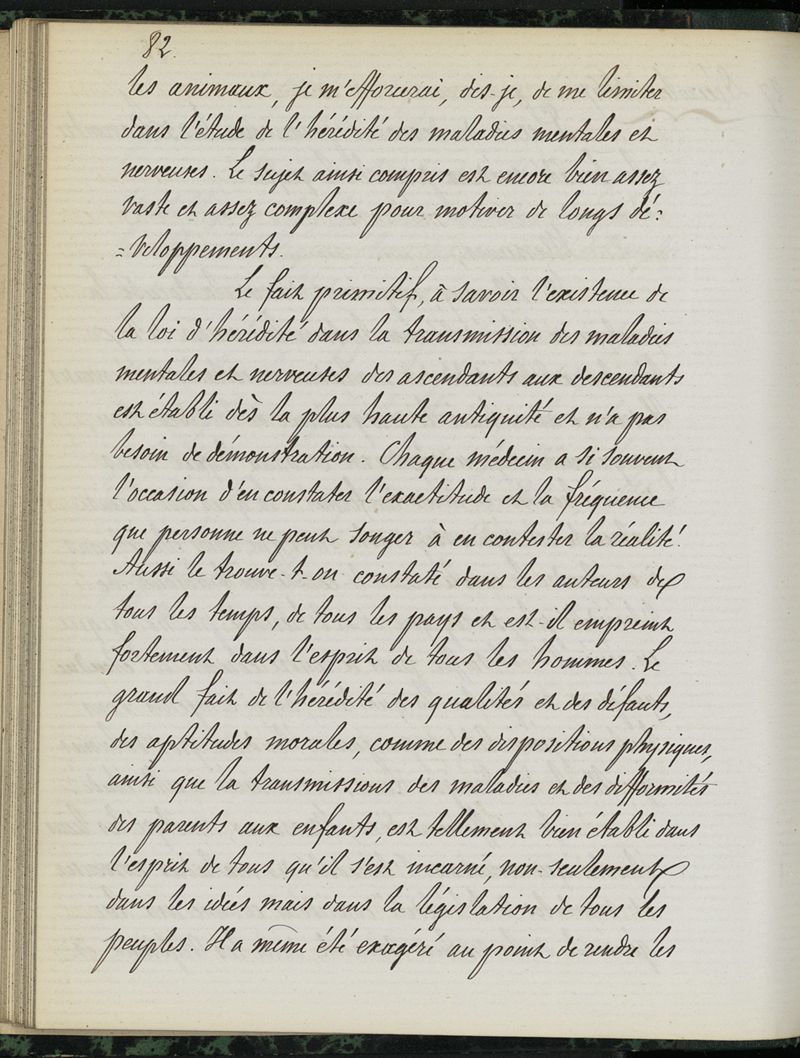 82.
les animaux, je m'efforcerai, dis-je, de me limiter
dans l'étude de l'hérédité des maladies mentales et
nerveuses. Le sujet ainsi compris est encore bien assez
vaste et assez complexe pour motiver de longs dé=
=veloppements.
Le fait primitif, à savoir l'existence de
la loi d'hérédité dans la transmission des maladies
mentales et nerveuses des ascendants aux descendants
est établi dès la plus haute antiquité et n'a pas
besoin de démonstration. Chaque médecin a si souvent
l'occasion d'en constater l'exactitude et la fréquence
que personne ne peut songer à en contester la réalité.
Aussi le trouve-t-on constaté dans les auteurs de
tous les temps, de tous les pays et est-il empreint
fortement dans l'esprit de tous les hommes. Le
grand fait de l'hérédité des qualités et des défauts,
des aptitudes morales, comme des dispositions physiques,
ainsi que la transmissions des maladies et des difformités
des parents aux enfants, est tellement bien établi dans
l'esprit de tous qu'il s'est incarné, non-seulement
dans les idées mais dans la législation de tous les
peuples. Il a même été exagéré au point de rendre les